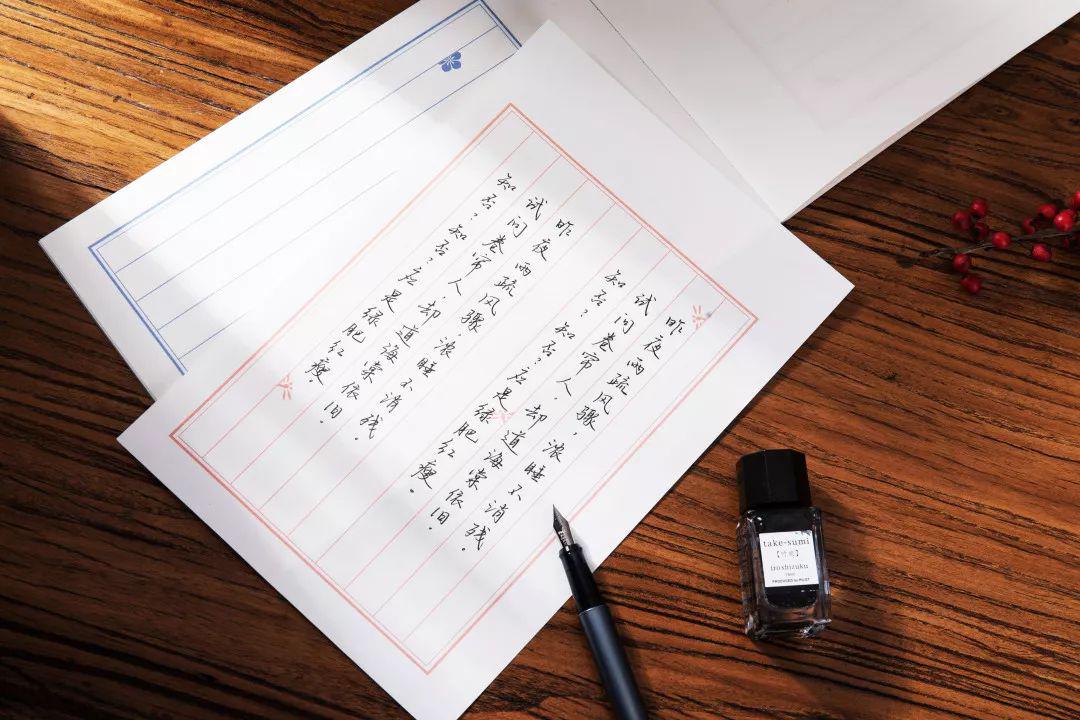 昨夜雨疏风骤，浓睡不消残。
试问卷帘人，却道海棠依旧。
知否？知否？应是绿肥红瘦。
昨夜雨疏风骤，浓睡不消残。
试问卷帘人，却道海棠依旧。
知否？知否？应是绿肥红瘦。
take-sumi
【竹炭】
iroshizuku
PRODUCED by PILOT